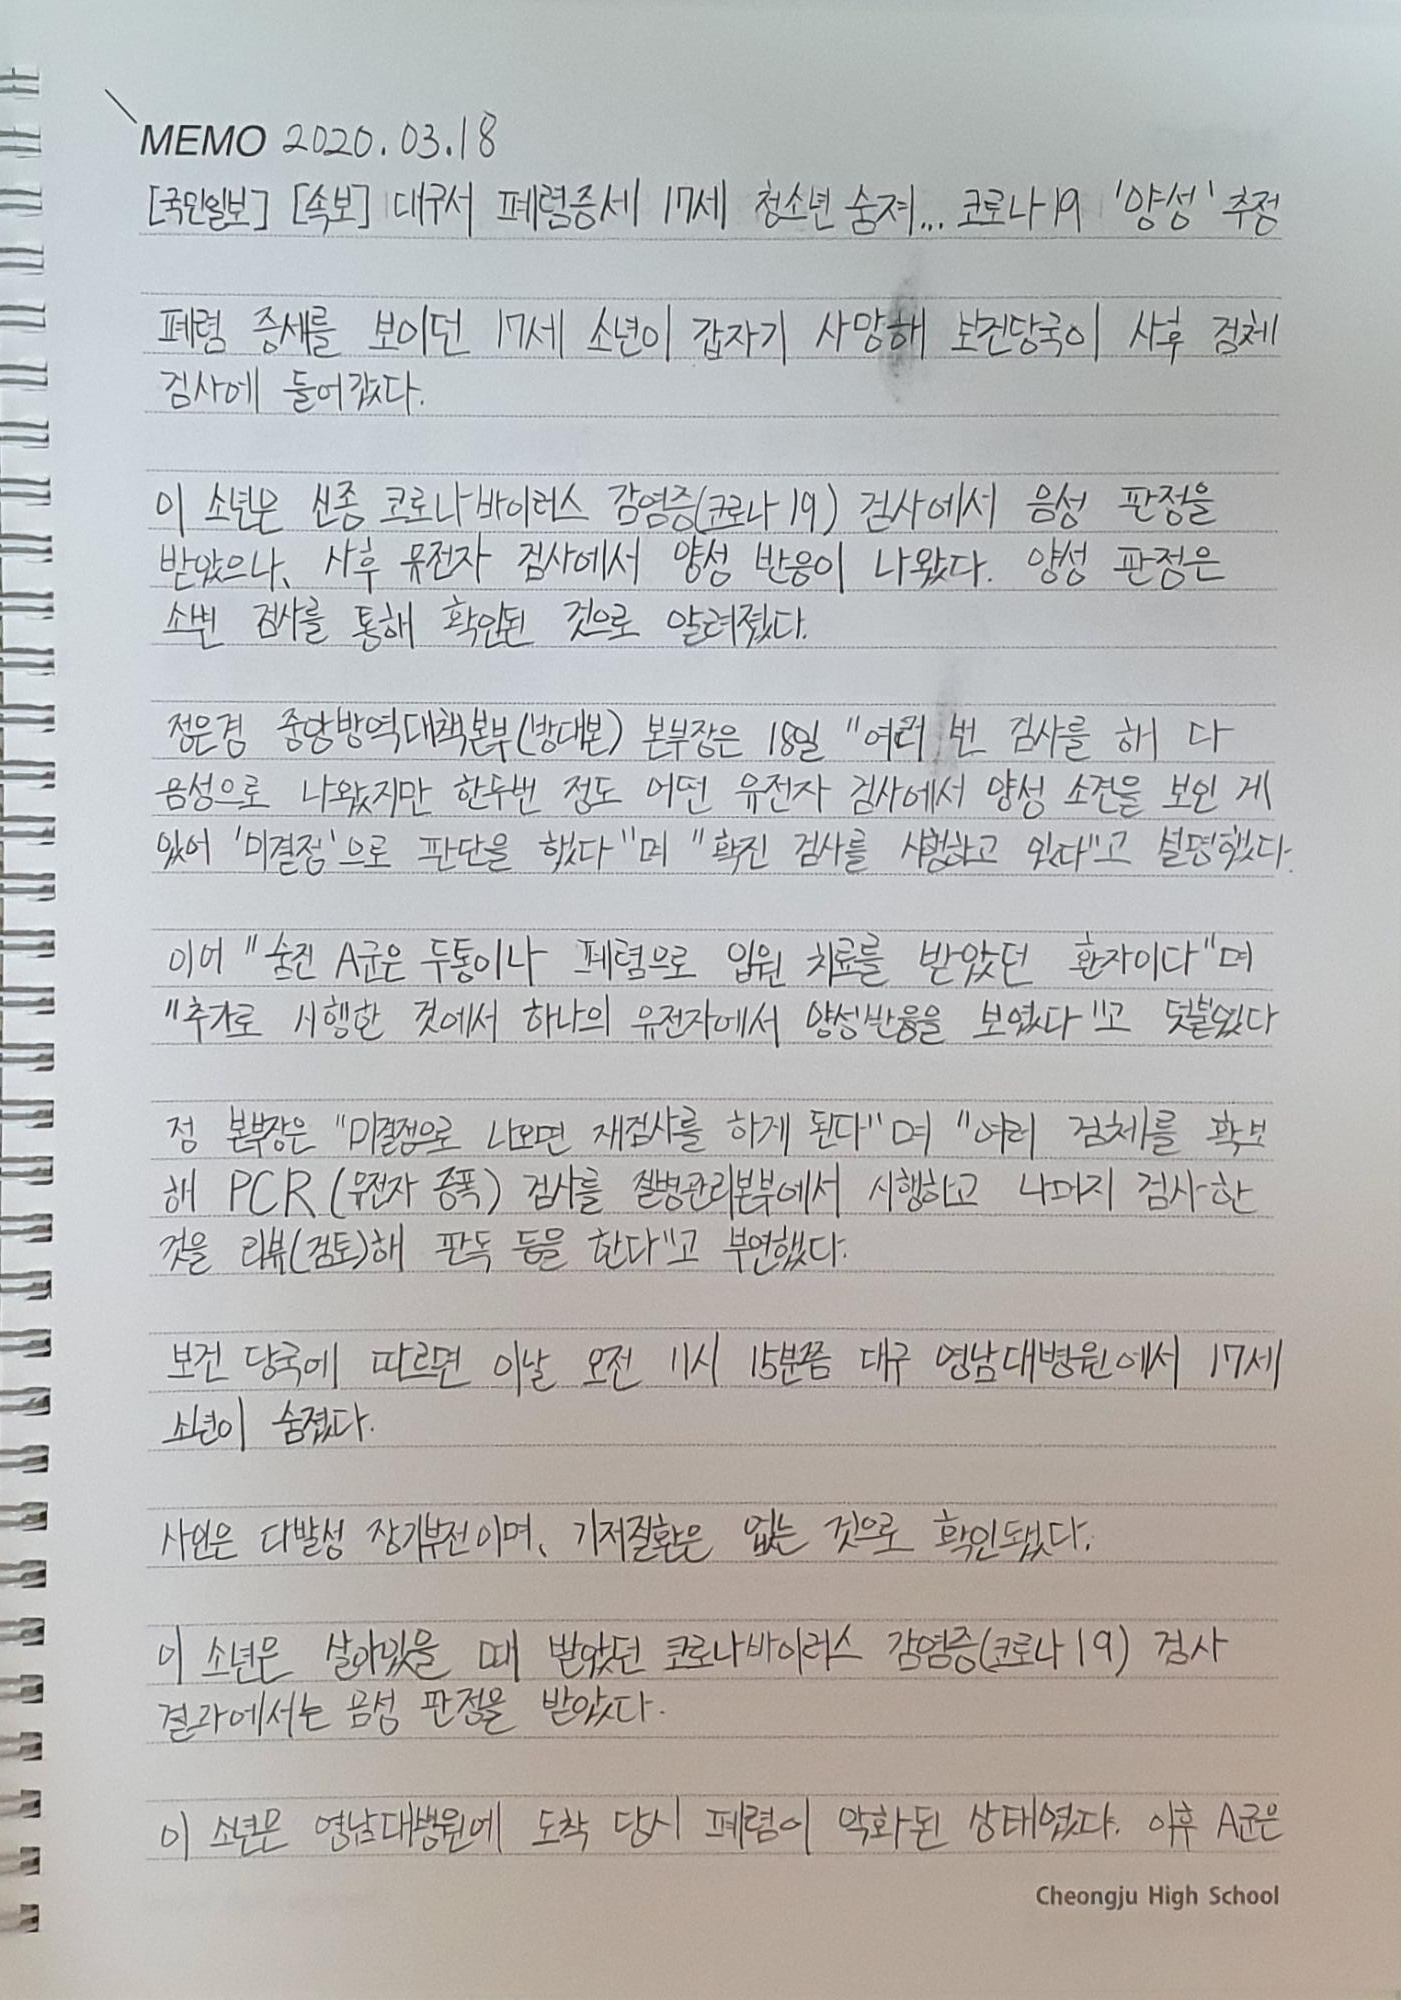 MEMO 2020.03.18
[국민일보] [속보] 대구서 폐렴증세 17세 청소년 숨져... 코로나19 '양성' 추정
폐렴 증세를 보이던 17세 소년이 갑자기 사망해 보건당국이 사후 검체
검사에 들어갔다.
이 소년은 신종 코로나바이러스 감염증(코로나19) 검사에서 음성 판정을
받았으나, 사후 유전자 검사에서 양성 반응이 나왔다. 양성 판정은
소변 검사를 통해 확인된 것으로 알려졌다.
정은경 중앙방역대책본부(방대본) 본부장은 18일 "여러 번 검사를 해 다
음성으로 나왔지만 한두번 정도 어떤 유전자 검사에서 양성 소견을 보인 게
있어 '미결정'으로 판단을 했다"며 "확진 검사를 시험하고 있다"고 설명했다.
이어 "숨진 A군은 두통이나 폐렴으로 입원 치료를 받았던 환자이다"며
"추가로 시행한 것에서 하나의 유전자에서 양성반응을 보였다"고 덧붙였다
정 본부장은 "미결정으로 나오면 재검사를 하게 된다"며 "여러 검체를 확보
해 PCR(유전자 증폭) 검사를 질병관리본부에서 시행하고 나머지 검사한
것을 리뷰(검토)해 판독 등을 한다"고 부연했다.
보건 당국에 따르면 이날 오전 11시 15분쯤 대구 영남대병원에서 17세
소년이 숨졌다.
사인은 다발성 장기부전이며, 기저질환은 없는 것으로 확인됐다.
이 소년은 살아있을 때 받았던 코로나바이러스 감염증(코로나19) 검사
결과에서는 음성 판정을 받았다.
이 소년은 영남대병원에 도착 당시 폐렴이 악화된 상태였다. 이후 A군은
Cheongju High School